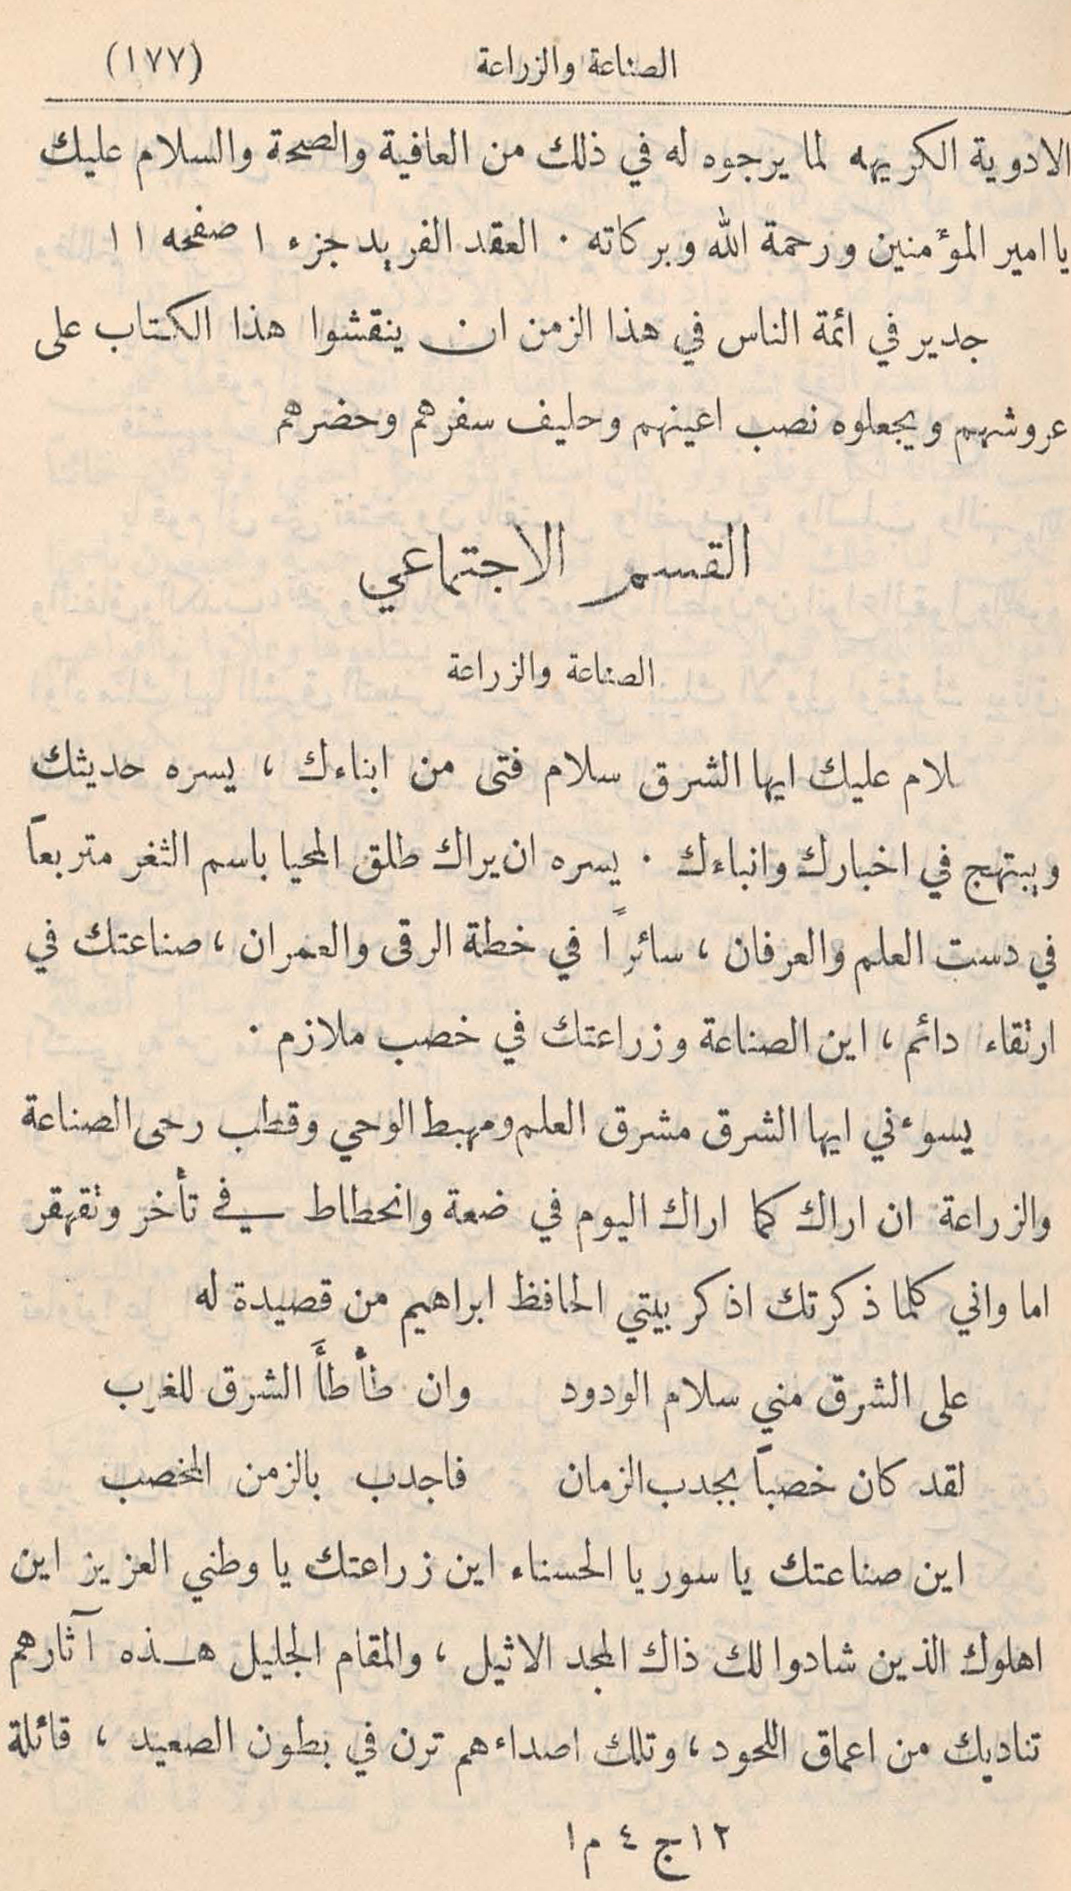 الصناعة والزراعة (١٧٧)
الادوية الكريهه لما يرجوه له في ذلك من العافية والصحة والسلام عليك
يا امير المؤمنين ورحمة الله وبركاته . العقد الفريد جزء ١ صفحه ١١
جدير في ائمة الناس في هذا الزمن ان ينقشوا هذا الكتاب على
عروشهم ويجعلوه نصب اعينهم وحليف سفرهم وحضرهم
القسم الاجتماعي
الصناعة والزراعة
لام عليك ايها الشرق سلام فتى من ابناءك ، يسره حديثك
ويبتهج في اخبارك وانباءك . يسره ان يراك طلق المحيا باسم الثغر متربعاً
في دست العلم والعرفان ، سائراً في خطة الرقى والعمران ، صناعتك في
ارتقاء دائم ، اين الصناعة وزراعتك في خصب ملازم .
يسوءني ايها الشرق مشرق العلم ومهبط الوحي وقطب رحى الصناعة
والزراعة ان اراك كما اراك اليوم في ضعة وانحطاط في تأخر وتقهقر
اما واني كلما ذكرتك اذكر بيتي الحافظ ابراهيم من قصيدة له
على الشرق مني سلام الودود وان طأطأَ الشرق للغرب
لقد كان خصباً بجدب الزمان فاجدب بالزمن المخصب
اين صناعتك يا سوريا الحسناء اين زراعتك يا وطني العزيز اين
اهلوك الذين شادوا لك ذاك المجد الاثيل ، والمقام الجليل هذه آثارهم
تناديك من اعماق اللحود ، وتلك اصداءهم ترن في بطون الصعيد ، قائلة
١٢ ج ٤ م ١